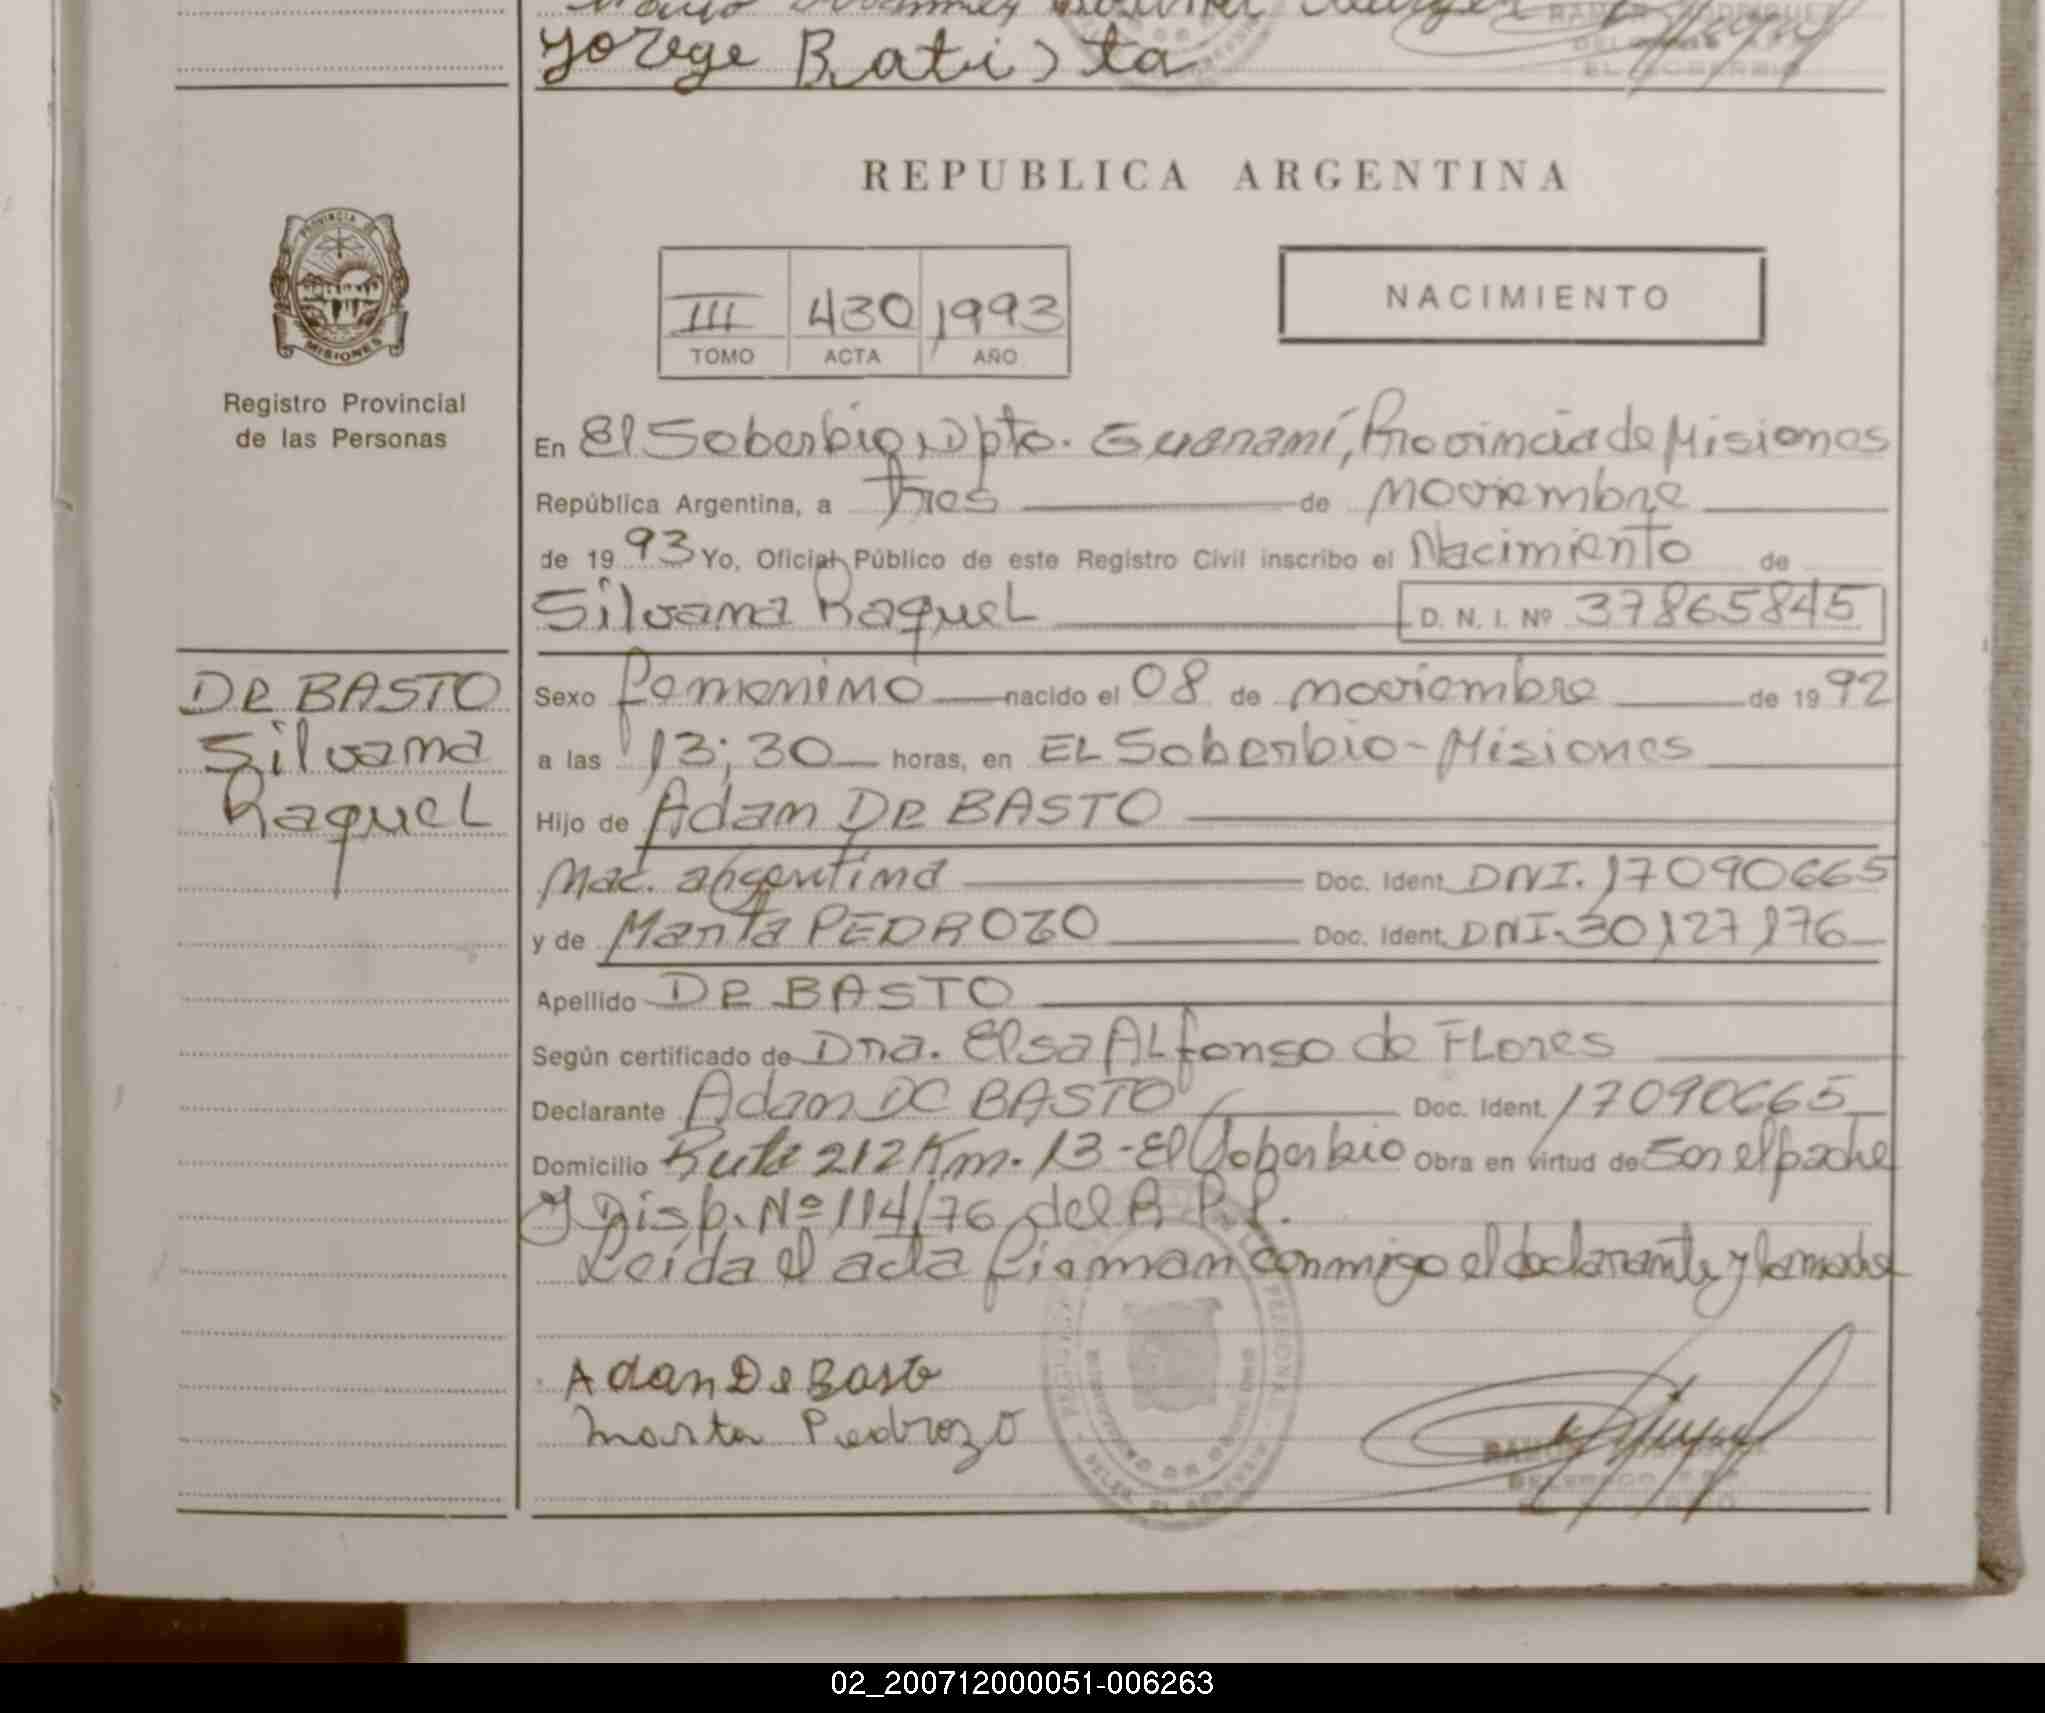 Jorge Batista
REPUBLICA ARGENTINA
PROVINCIA DE
MISIONES
Registro Provincial
de las Personas
III 430 1993
TOMO ACTA AÑO
NACIMIENTO
En El Soberbio, Dpto. Guaraní, Provincia de Misiones
República Argentina, a tres de noviembre
de 1993 Yo, Oficial Público de este Registro Civil inscribo el Nacimiento de
Silvana Raquel D. N. I. Nº 37865845
DE BASTO
Silvana
Raquel
Sexo femenino nacido el 08 de noviembre de 1992
a las 13;30 horas, en EL Soberbio-Misiones
Hijo de Adan DE BASTO
nac. argentina Doc. Ident. DNI. 17090665
y de Marta PEDROZO Doc. Ident. DNI. 30127176
Apellido DE BASTO
Según certificado de Dra. Elsa ALfonso de FLores
Declarante Adan DE BASTO Doc. Ident. 17090665
Domicilio Ruta 212 Km. 13 - El Soberbio Obra en virtud de ser el padre
y Disp. Nº 114/76 del R.P.P.
Leída el acta firman conmigo el declarante y la madre
Adan De Basto
Marta Pedrozo
02_200712000051-006263